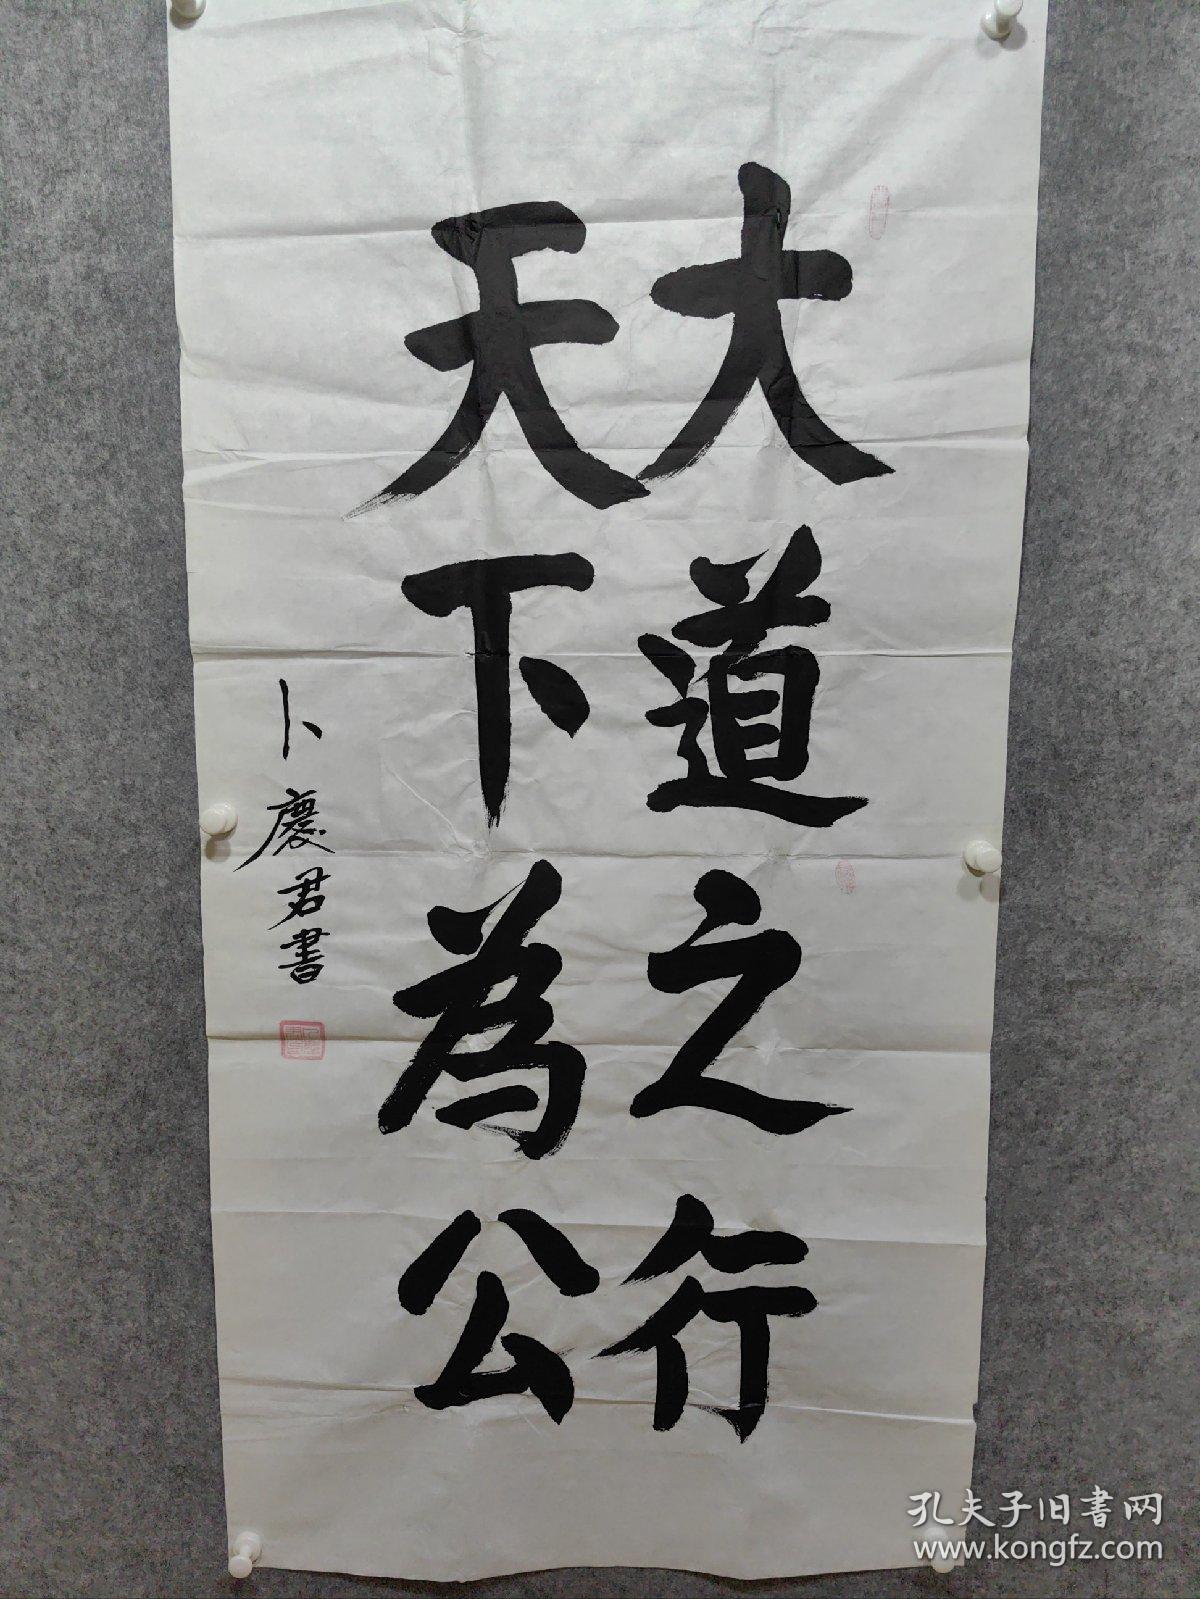 大道之行
天下為公
卜慶君書
孔夫子旧書网
www.kongfz.com